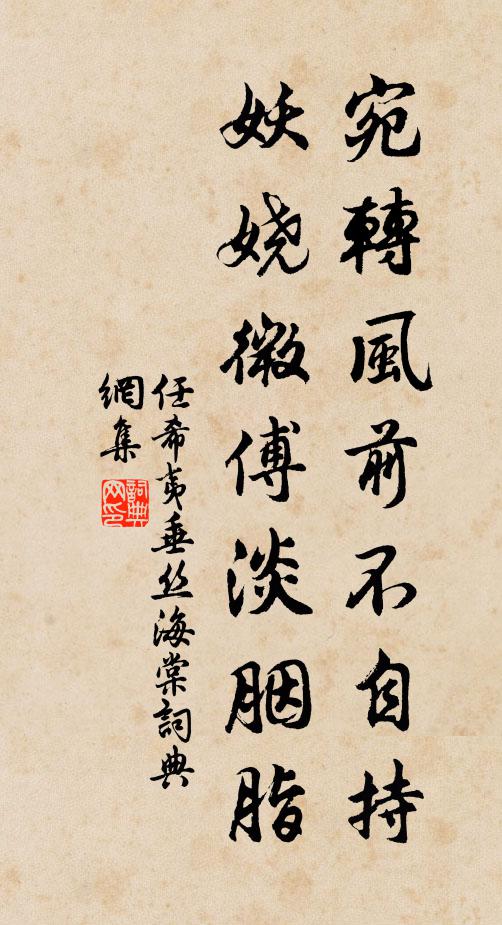 宛轉風前不自持
妖娆微傅淡胭脂
任希夷垂丝海棠詞典
網集
詞典网印